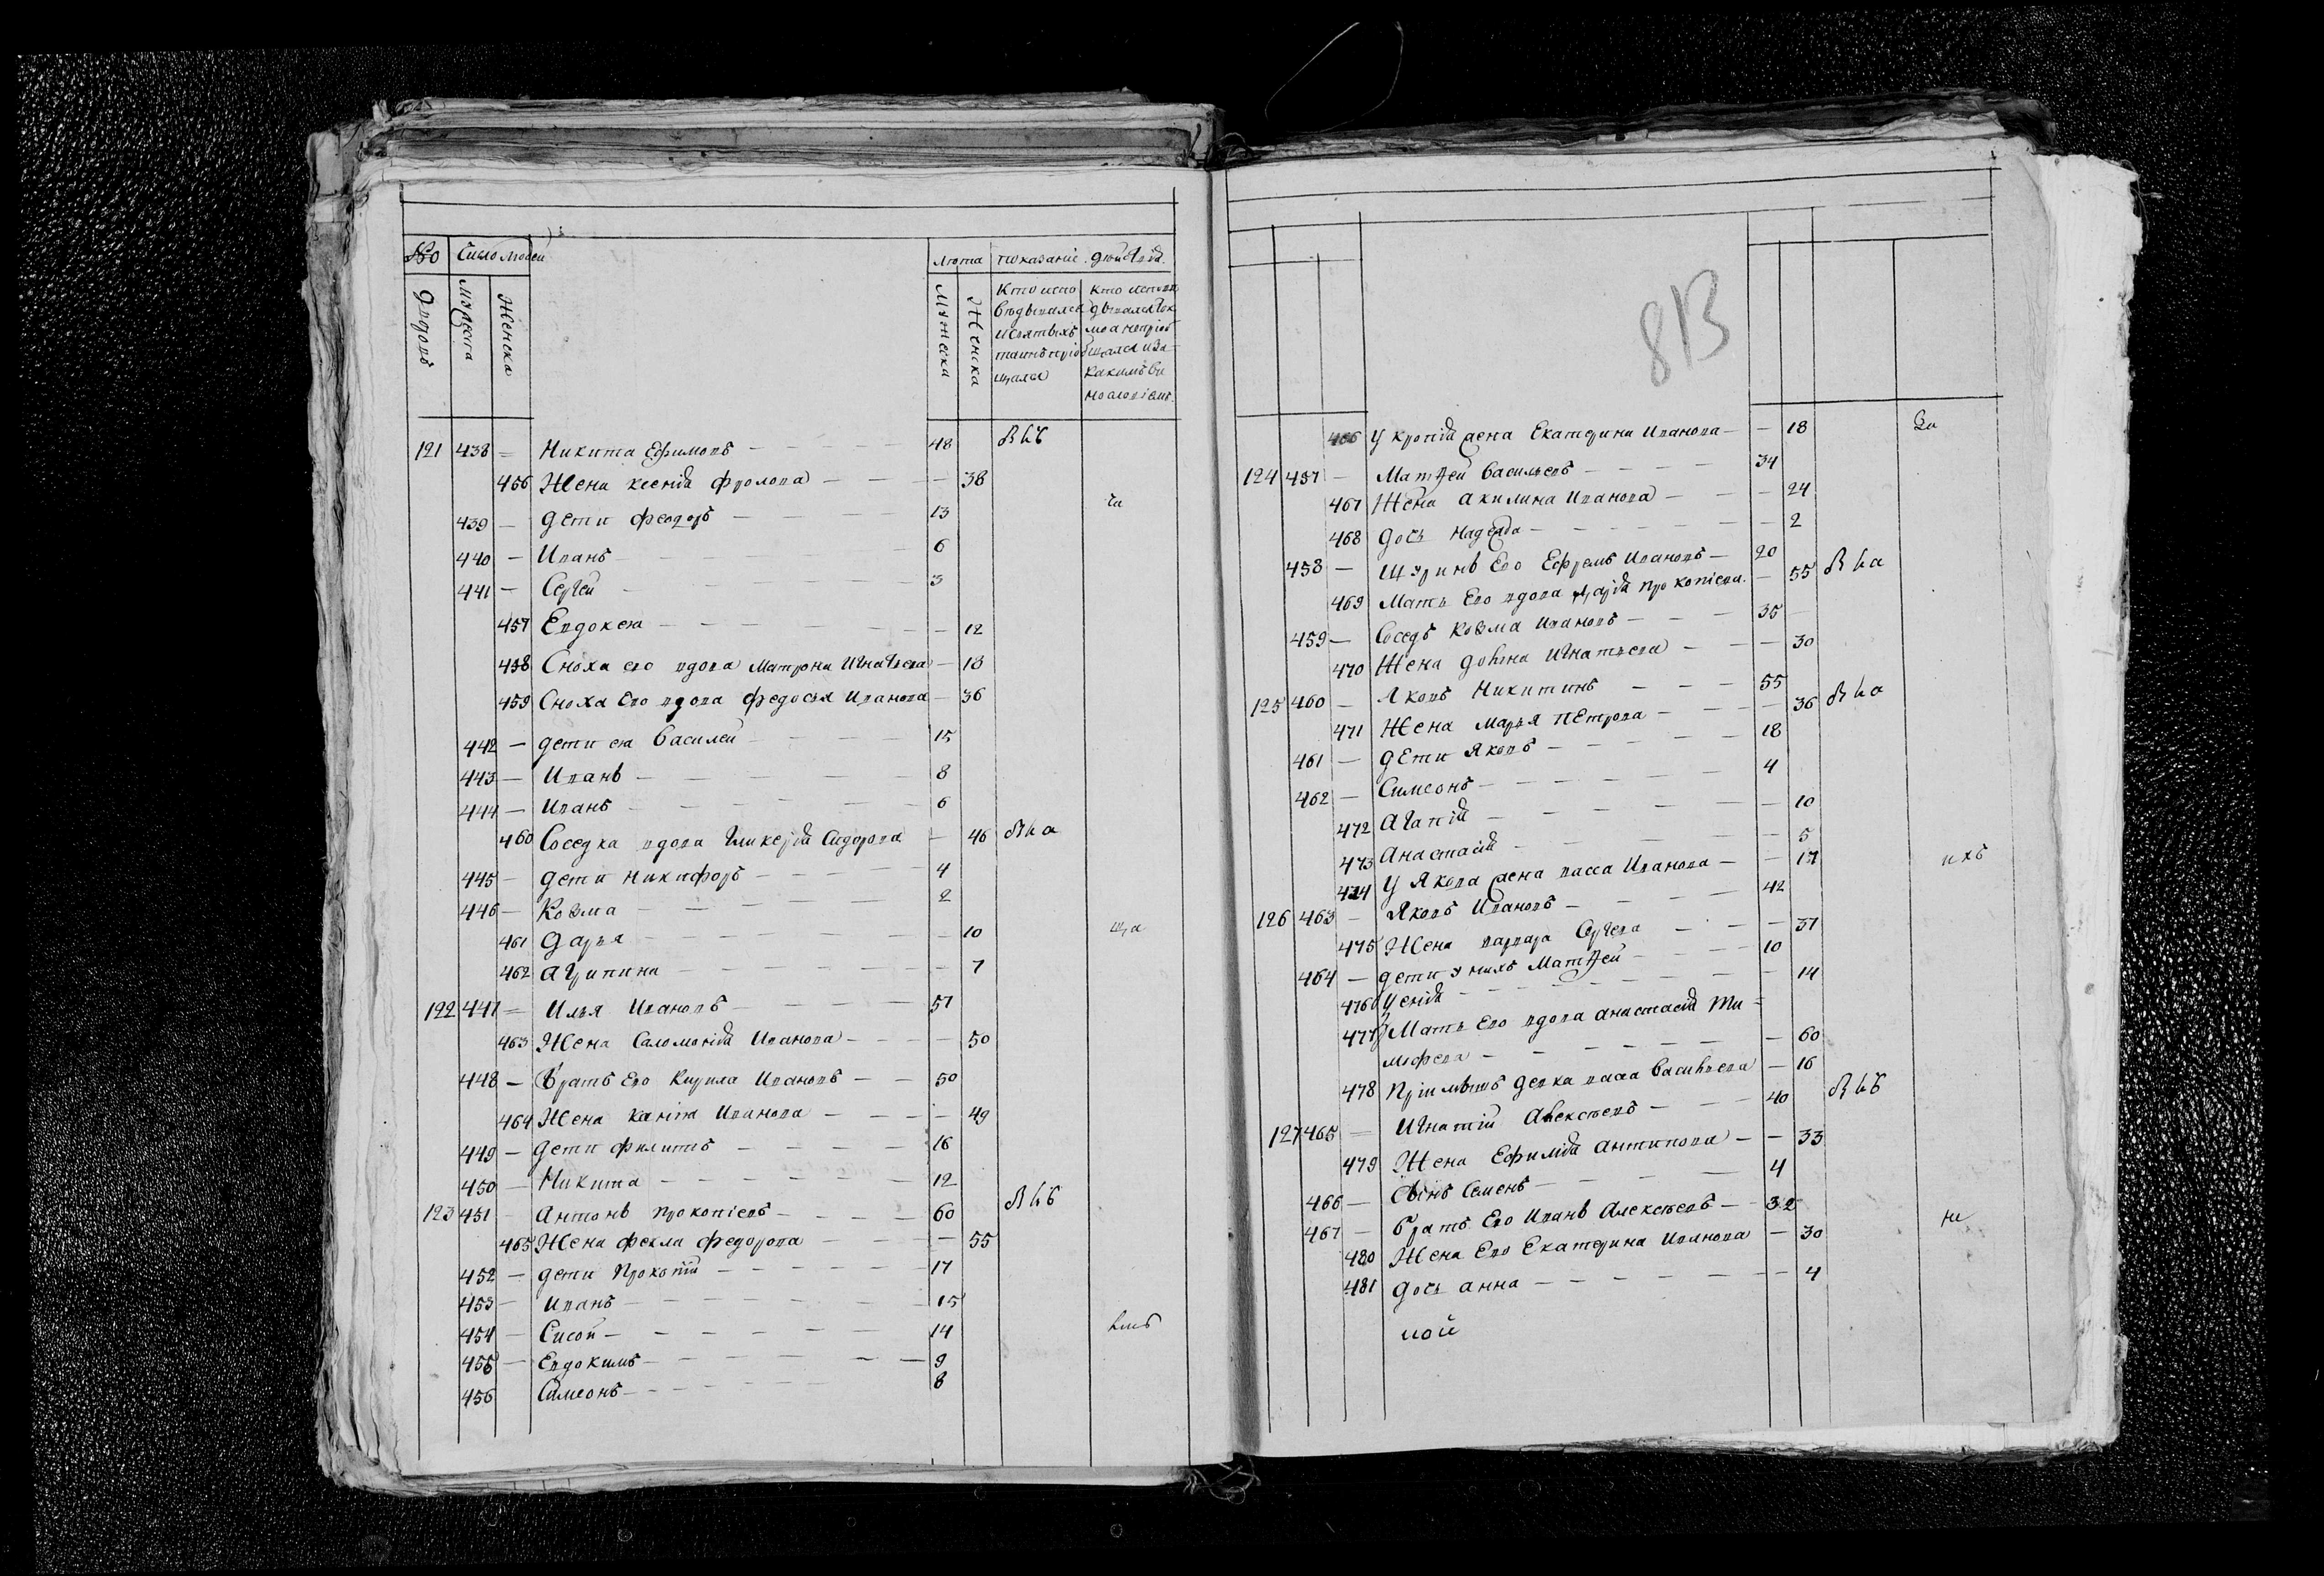 No Число людей лѣта показаніе действія
дворовъ мужеска женска мужеска женска
кто испо кто испове
ведывался дывался ток
и святыхъ мо а непріоб
таинъ пріоб щался и за
щался какимъ ви
нословіемъ
121 438 = Никита Ефимовъ — 48 Випъ
456 Жена ксенія фролова — 38
439 — дети феодоръ — 13
440 — Иванъ — 6
441 — Сергей — 3
457 Евдокея — 12
458 Сноха его вдова Матрона Игнатьева — 18
459 Сноха Его вдова федосья Иванова — 36
442 — дети ея Василей — 15
443 — Иванъ — 8
444 — Иванъ — 6
460 Соседка вдова Гликерія Сидорова — 46
445 — дети никифоръ — 4
446 — Козма — 2
461 дарья — 10
462 агрипина — 7
122 447 = Илья Ивановъ — 57
463 Жена Саломонія Иванова — 50
448 — Братъ Его Кирила Ивановъ — 50
464 Жена Иванова — 49
449 — дети филипъ — 16
450 — Никита — 12
123 451 Антонъ Прокопіевъ — 60
465 Жена фекла федорова — 55
452 — дети Прокопій — 17
453 — Иванъ — 15
454 — Сисой — 14
455 — Евдокимъ — 9
456 Симеонъ — 8
813
466 У жена Екатерина Иванова — 18 За
124 457 — Матфей васильевъ — 34
467 Жена акилина Иванова — 24
468 дочь надежда — 2
458 — Шуринъ Его Ефремъ Ивановъ — 20
469 Мать Его вдова марія прокопіева — 55
459 — Соседъ Козма Ивановъ — 35
470 Жена Игнатьева — 30
125 460 — Яковъ Никитинъ — 55
471 Жена Марья пЕтрова — 36
461 — дЕти Яковъ — 18
462 — Симеонъ — 4
472 Агапія — 10
473 Анастасія — 5
474 У Якова жена васса Иванова — 17 ихъ
126 463 — Яковъ Ивановъ — 42
475 Жена варвара Сергева — 37
464 — дети у нихъ Матфей — 10
476 — 14
477 Мать Его вдова анастасія Ти=
мофева — 60
478 девка васса Васильева — 16
127 465 = Игнатій Алексеевъ — 40
479 Жена Ефимія антипова — 33
466 — Сынъ Семенъ — 4
467 — братъ Его Иванъ Алексеевъ — 32
480 Жена Его Екатерина Иванова — 30 не
481 дочь анна — 4
мой